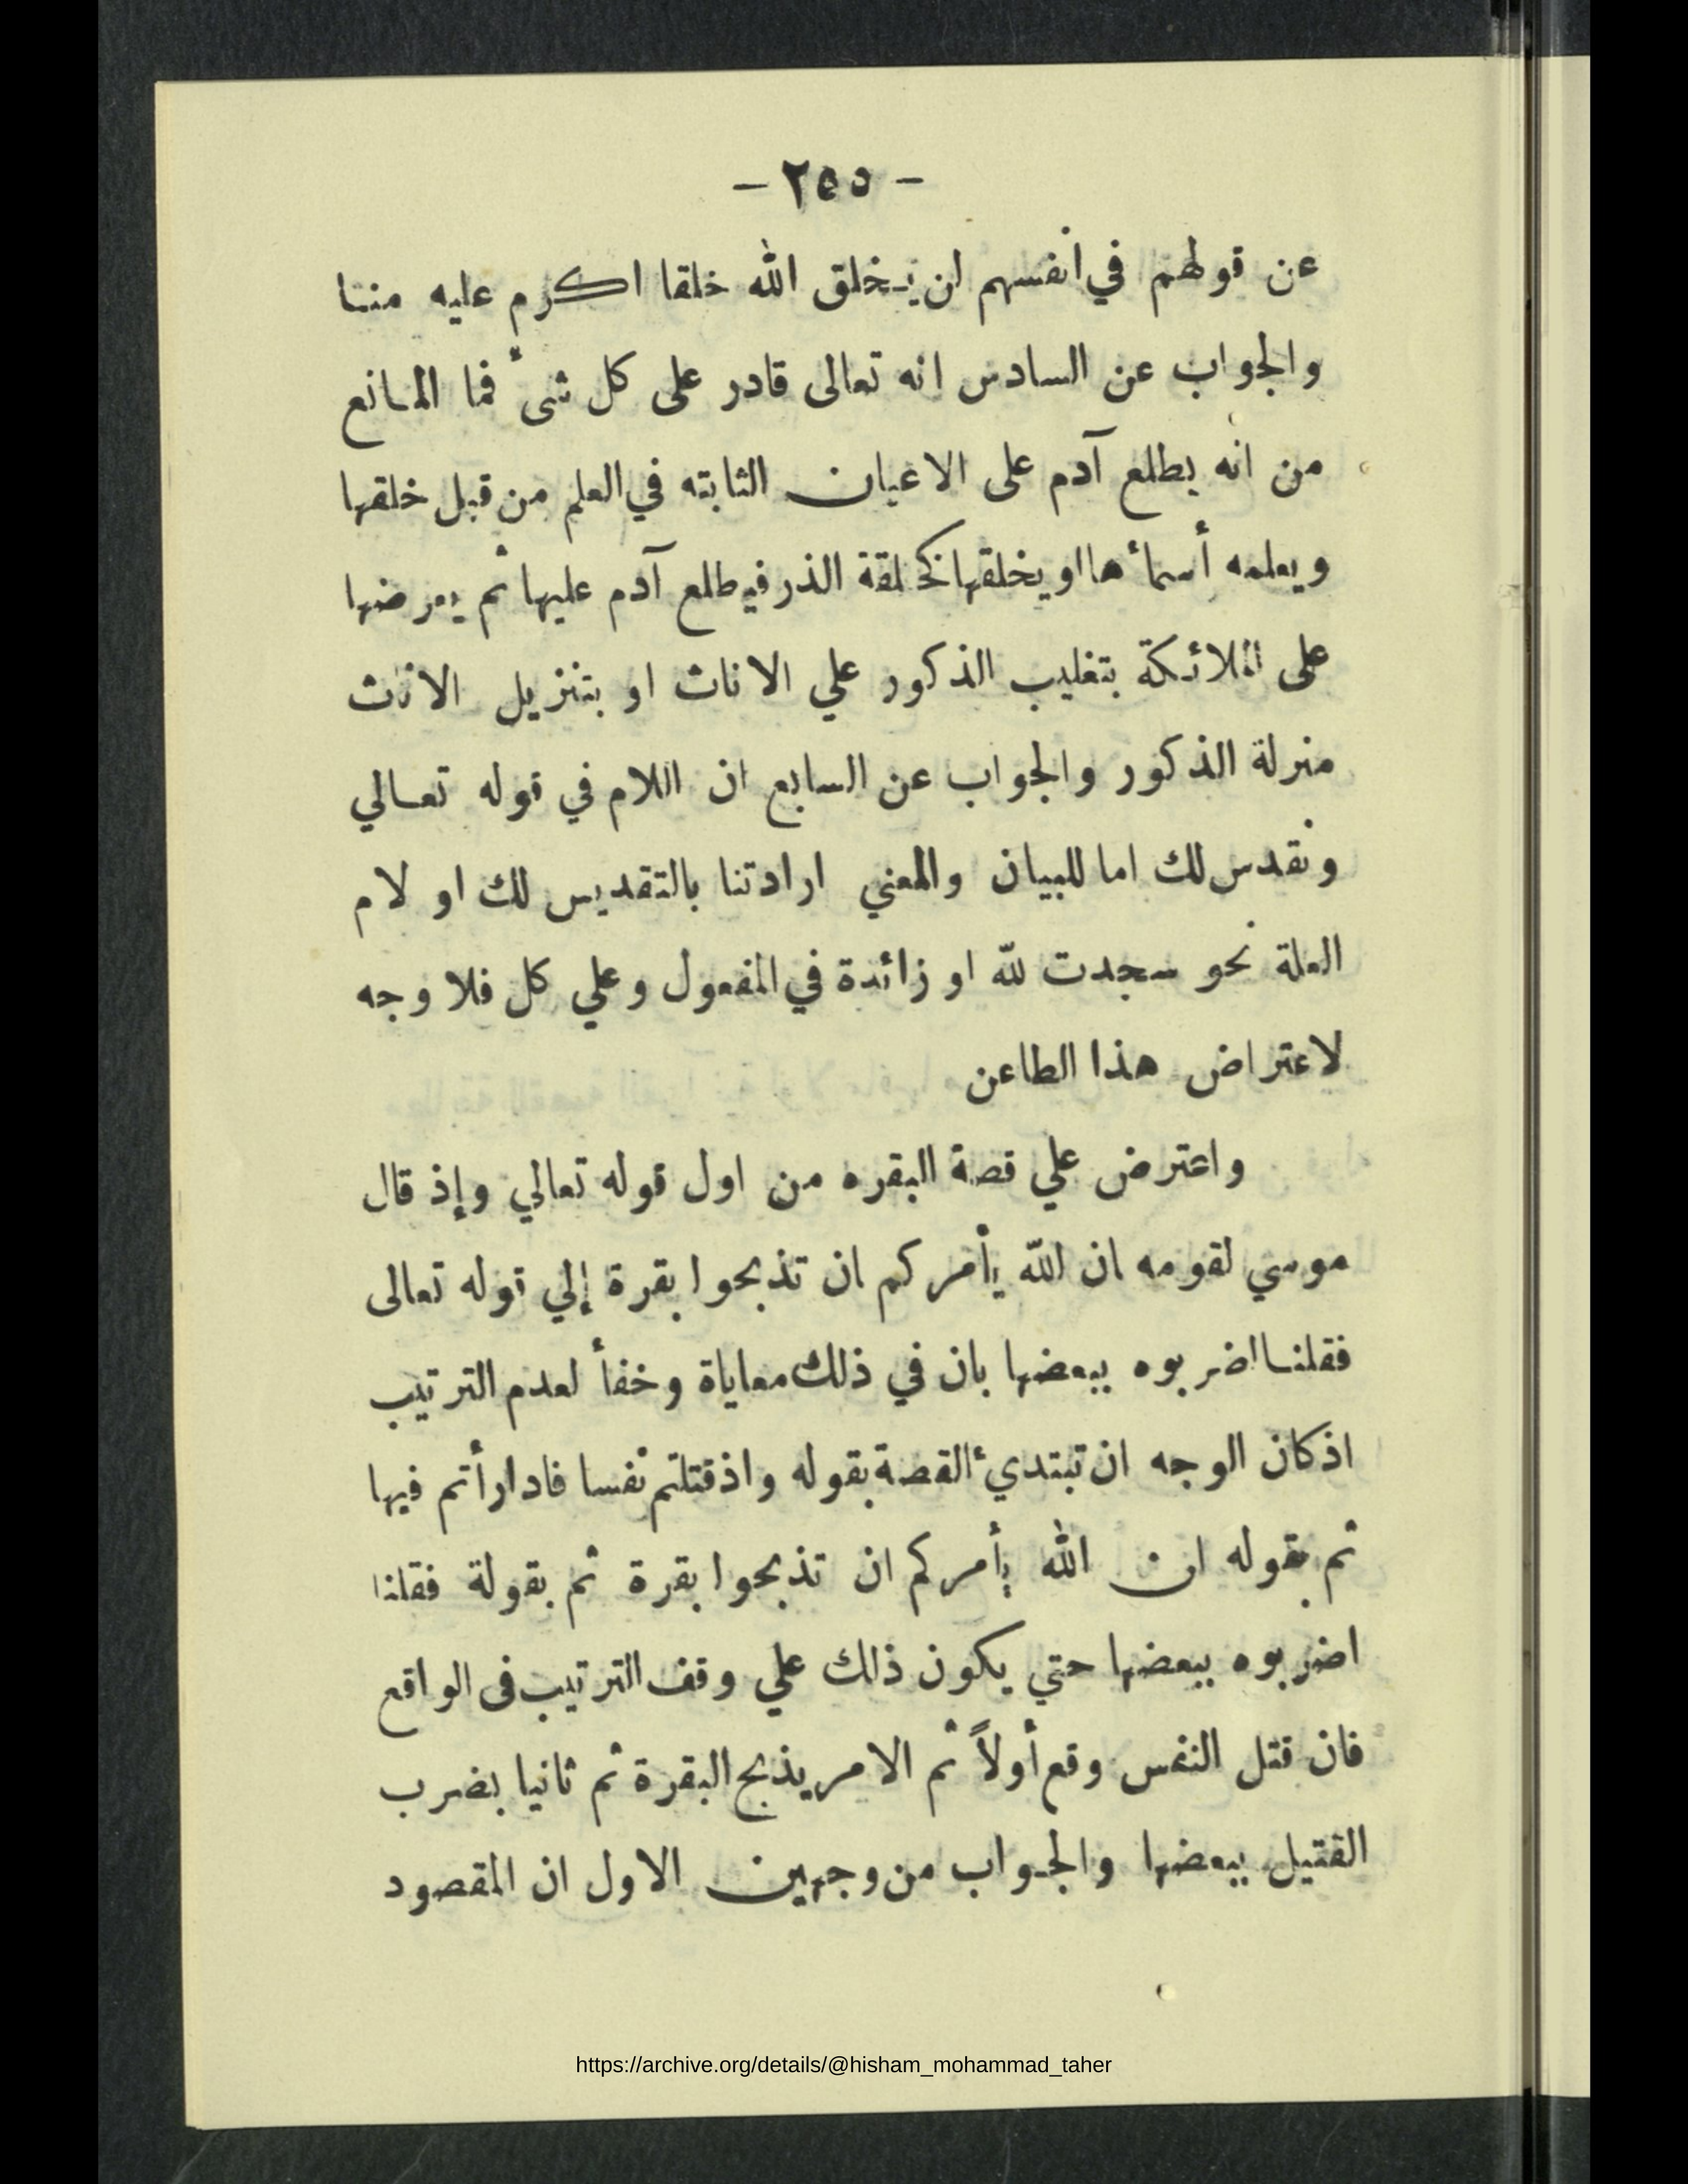 - ٢٥٥ -
عن قولهم في انفسهم لن يخلق الله خلقا اكرم عليه منا
والجواب عن السادس انه تعالى قادر على كل شئ فما المانع
من انه يطلع آدم على الاعيان الثابته في العلم من قبل خلقها
ويعلمه أسمائها او يخلقها كخلقة الذر فيطلع آدم عليها ثم يعرضها
على الملائكة بتغليب الذكور علي الاناث او بتنزيل الاناث
منزلة الذكور والجواب عن السابع ان اللام في قوله تعالي
ونقدس لك اما للبيان والمعني ارادتنا بالتقديس لك او لام
العلة نحو سجدت لله او زائدة في المفعول وعلي كل فلا وجه
لاعتراض هذا الطاعن
واعترض علي قصة البقره من اول قوله تعالي وإذ قال
موسي لقومه ان الله يأمركم ان تذبحوا بقرة إلي قوله تعالى
فقلنا اضربوه ببعضها بان في ذلك معاياة وخفأ لعدم الترتيب
اذ كان الوجه ان تبتديء القصة بقوله واذ قتلتم نفسا فادارأتم فيها
ثم بقوله ان الله يأمركم ان تذبحوا بقرة ثم بقولة فقلنا
اضربوه ببعضها حتي يكون ذلك علي وقف الترتيب فى الواقع
فان قتل النفس وقع أولاً ثم الامر يذبح البقرة ثم ثانيا بضرب
القتيل ببعضها والجواب من وجهين الاول ان المقصود
https://archive.org/details/@hisham_mohammad_taher